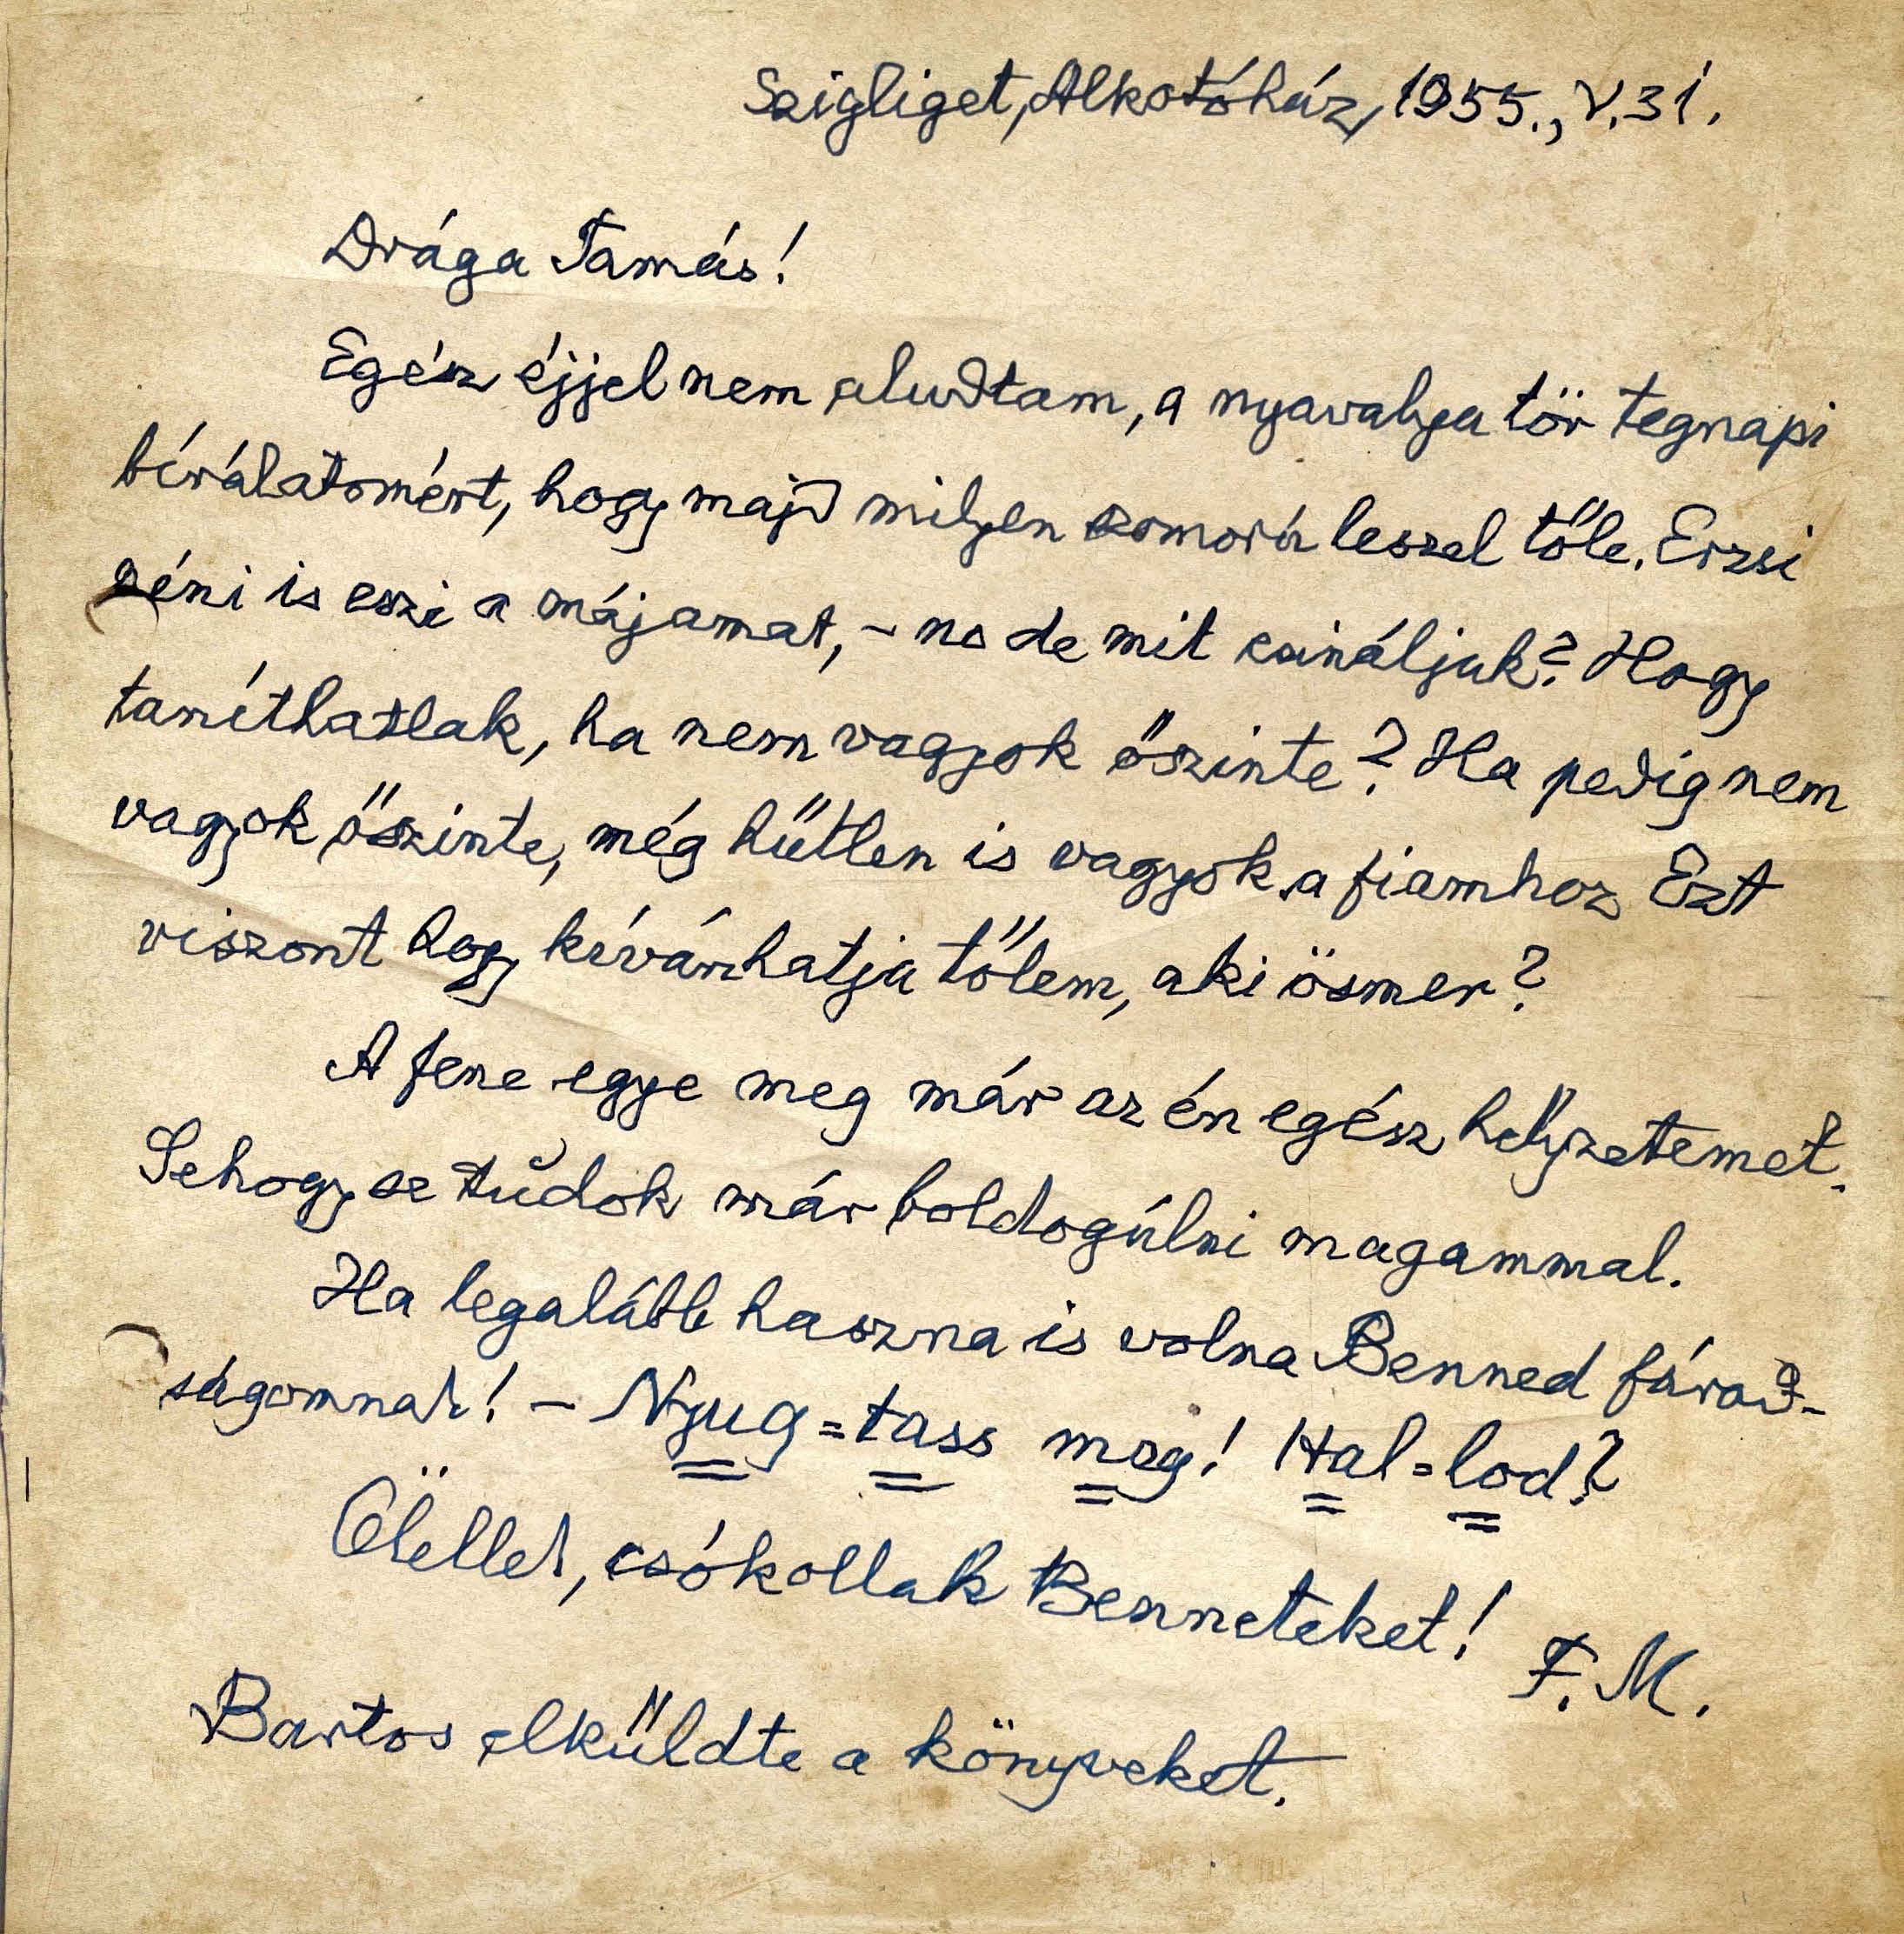 Szigliget, Alkotóház, 1955., V. 31.
Drága Tamás!
Egész éjjel nem aludtam, a nyavalya tör tegnapi
bírálatomért, hogy majd milyen szomorú leszel tőle. Erzsi
néni is eszi a májamat, – no de mit csináljak? Hogy
taníthatlak, ha nem vagyok őszinte? Ha pedig nem
vagyok őszinte, még hűtlen is vagyok a fiamhoz Ezt
viszont hogy kívánhatja tőlem, aki ösmer?
A fene egye meg már az én egész helyzetemet.
Sehogy se tudok már boldogúlni magammal.
Ha legalább haszna is volna Benned fárad-
ságomnak! – Nyug=tass meg! Hal=lod?
Ölellek, csókollak Benneteket!
F. M.
Bartos elküldte a könyveket.